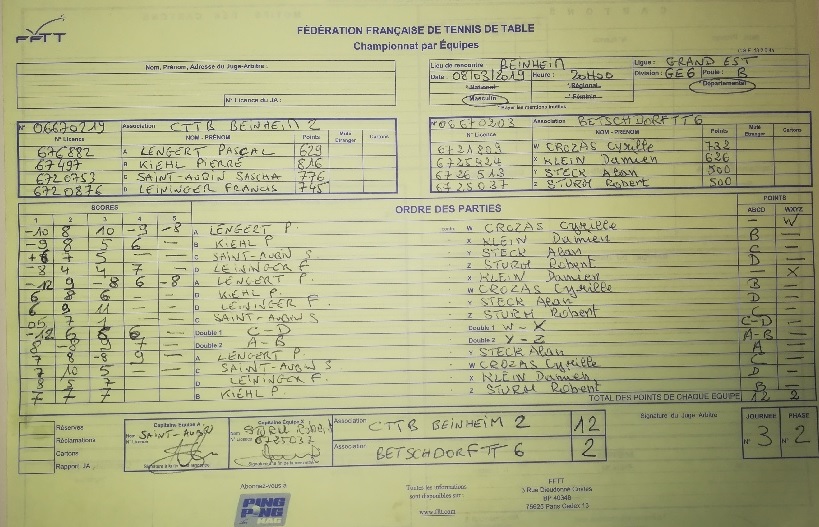 FFTT
FÉDÉRATION FRANÇAISE DE TENNIS DE TABLE
Championnat par Équipes
Nom, Prénom, Adresse du Juge-Arbitre :
N° Licence du JA :
Lieu de rencontre BEINHEIM Ligue : GRAND EST
Date : 08/03/2019 Heure : 20H00 Division : GE6 Poule : B
National Régional Départemental
Masculin Féminin
N° 06670219 Association CTTB BEINHEIM 2
N° Licence NOM - PRÉNOM Points Muté Etranger Cartons
676882 A LENGERT PASCAL 629
67497 B KIEHL PIERRE 816
6720753 C SAINT-AUBIN SASCHA 776
6720876 D LEININGER FRANCIS 745
N° 08670203 Association BETSCHDORF TT 6
N° Licence NOM - PRÉNOM Points Muté Etranger Cartons
6721803 W CROZAS Cyrille 732
X KLEIN Damien 626
6726513 Y STECK Alan 500
6725037 Z STURM Robert 500
SCORES ORDRE DES PARTIES POINTS
1 2 3 4 5 ABCD WXYZ
-10 8 10 -9 -8 A LENGERT P. W CROZAS Cyrille — W
-9 8 5 6 — B KIEHL P. X KLEIN Damien B —
7 5 — — C SAINT-AUBIN S Y STECK Alan C —
-8 4 4 7 — D LEININGER F Z STURM Robert D —
-12 9 -8 6 -8 A LENGERT P. X KLEIN Damien — X
6 8 6 — — B KIEHL P. W CROZAS Cyrille B —
6 9 11 — — D LEININGER F. Y STECK Alan D —
05 7 1 — — C SAINT-AUBIN S Z STURM Robert C —
-12 6 6 6 — Double 1 C-D Double 1 W-X C-D —
8 -8 9 7 — Double 2 A-B Double 2 Y-Z A-B —
7 8 -8 9 — A LENGERT P. Y STECK Alan A —
7 10 5 — — C SAINT-AUBIN S W CROZAS Cyrille C —
8 5 7 — D LEININGER F. X KLEIN Damien D —
7 7 7 — B KIEHL P. Z STURM Robert B —
TOTAL DES POINTS DE CHAQUE EQUIPE 12 2
Réserves
Réclamations
Cartons
Rapport JA
Capitaine Equipe A
Nom SAINT-AUBIN
N° Licence
Capitaine Equipe X
STURM Robert
N° Licence 6725037
Association CTTB BEINHEIM 2 12
Association BETSCHDORF TT 6 2
Signature du Juge Arbitre
JOURNEE PHASE
N° 3 N° 2
Abonnez-vous à
PING PONG MAG
Toutes les informations
sont disponibles sur :
www.fftt.com
FFTT
3 Rue Dieudonné Costes
BP 40348
75625 Paris Cedex 13